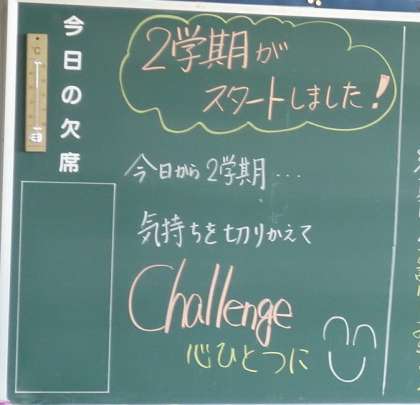 今日の欠席
℃
2学期が
スタートしました!
今日から2学期...
気持ちを切りかえて
Challenge
心ひとつに